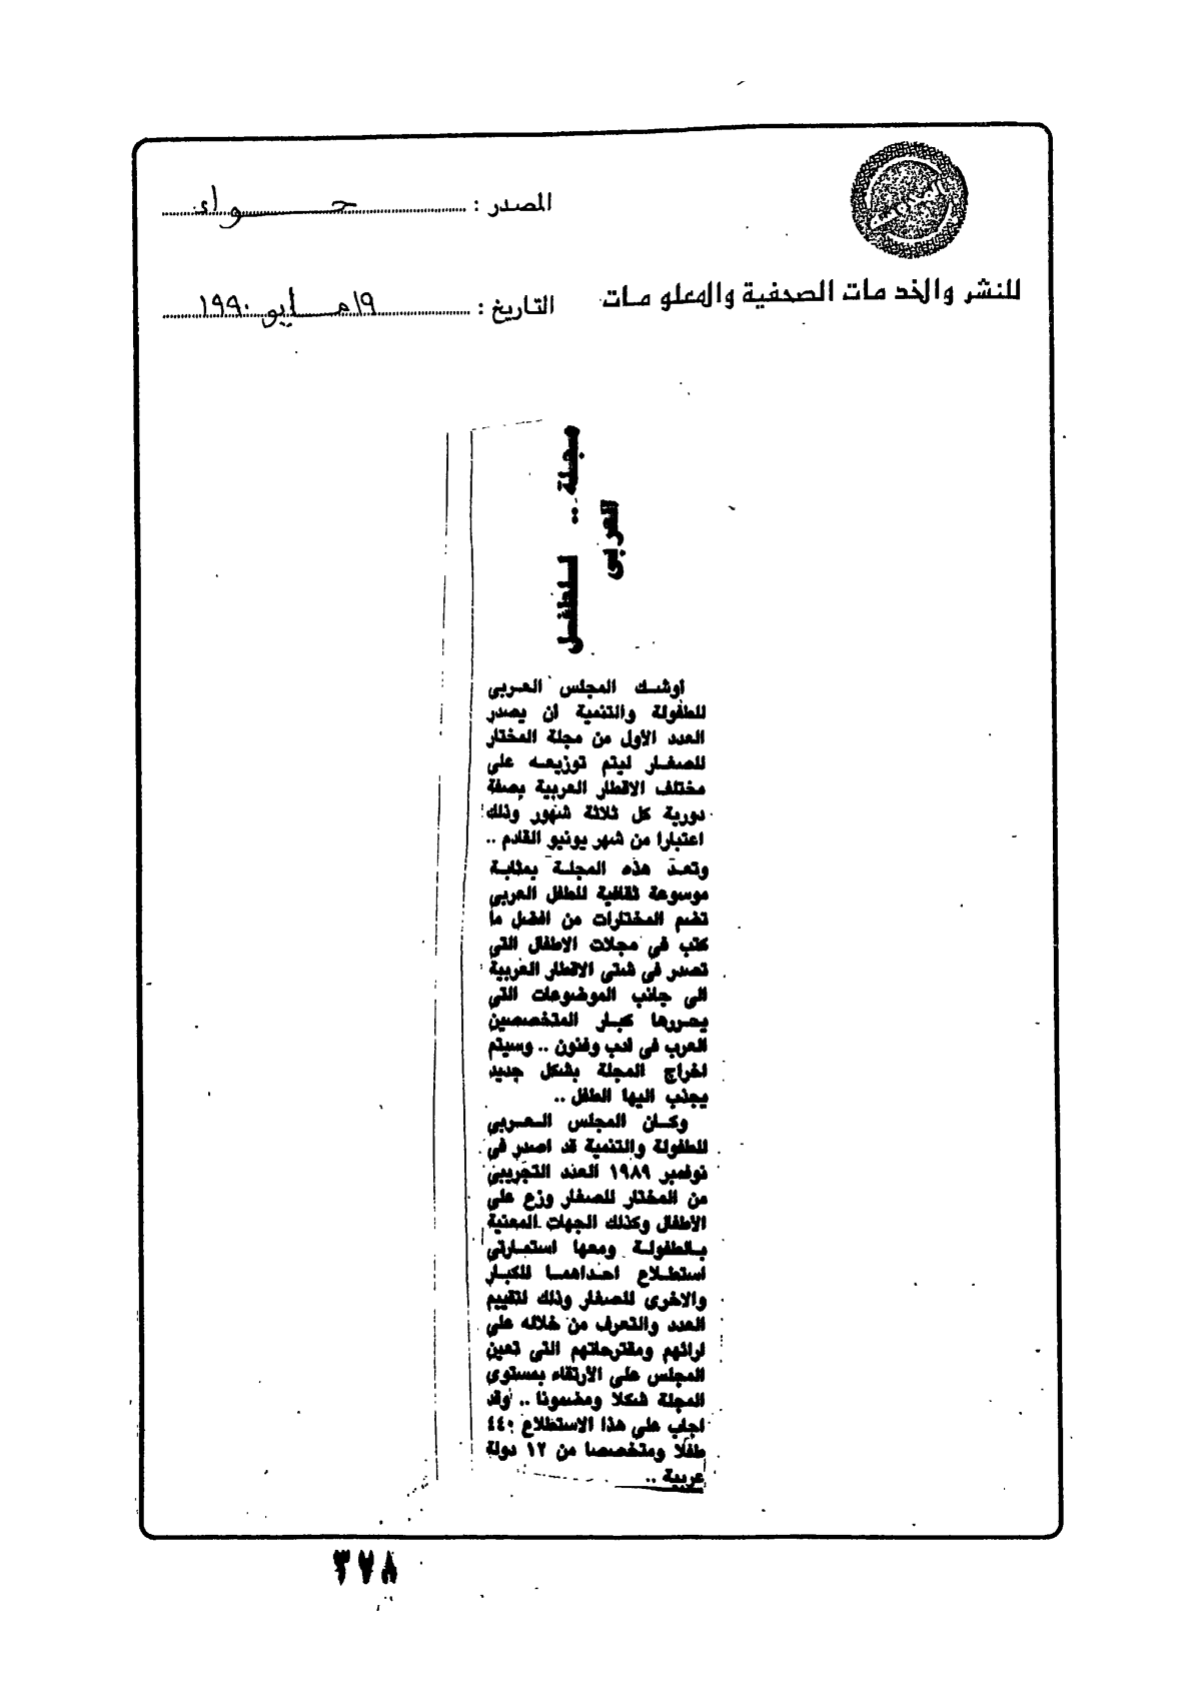 المصدر : حواء
للنشر والخدمات الصحفية والمعلومات
التاريخ : ١٩ مايو ١٩٩٠
مجلة .. للطفل
العربى
أوشك المجلس العربى
للطفولة والتنمية ان يصدر
العدد الأول من مجلة المختار
للصغار ليتم توزيعه على
مختلف الاقطار العربية بصفة
دورية كل ثلاثة شهور وذلك
اعتبارا من شهر يونيو القادم ..
وتعد هذه المجلة بمثابة
موسوعة ثقافية للطفل العربى
تضم المختارات من افضل ما
كتب فى مجلات الاطفال التى
تصدر فى شتى الاقطار العربية
الى جانب الموضوعات التى
يحررها كبار المتخصصين
العرب فى ادب وفنون .. وسيتم
اخراج المجلة بشكل جديد
يجذب اليها الطفل ..
وكان المجلس العربى
للطفولة والتنمية قد اصدر فى
نوفمبر ١٩٨٩ العدد التجريبى
من المختار للصغار وزع على
الاطفال وكذلك الجهات المعنية
بالطفولة ومعها استمارتى
استطلاع احداهما للكبار
والاخرى للصغار وذلك لتقييم
العدد والتعرف من خلاله على
ارائهم ومقترحاتهم التى تعين
المجلس على الأرتقاء بمستوى
المجلة شكلا ومضمونا .. وقد
اجاب على هذا الاستطلاع ٤٤٠
طفلا ومتخصصا من ١٢ دولة
عربية ..
٣٧٨